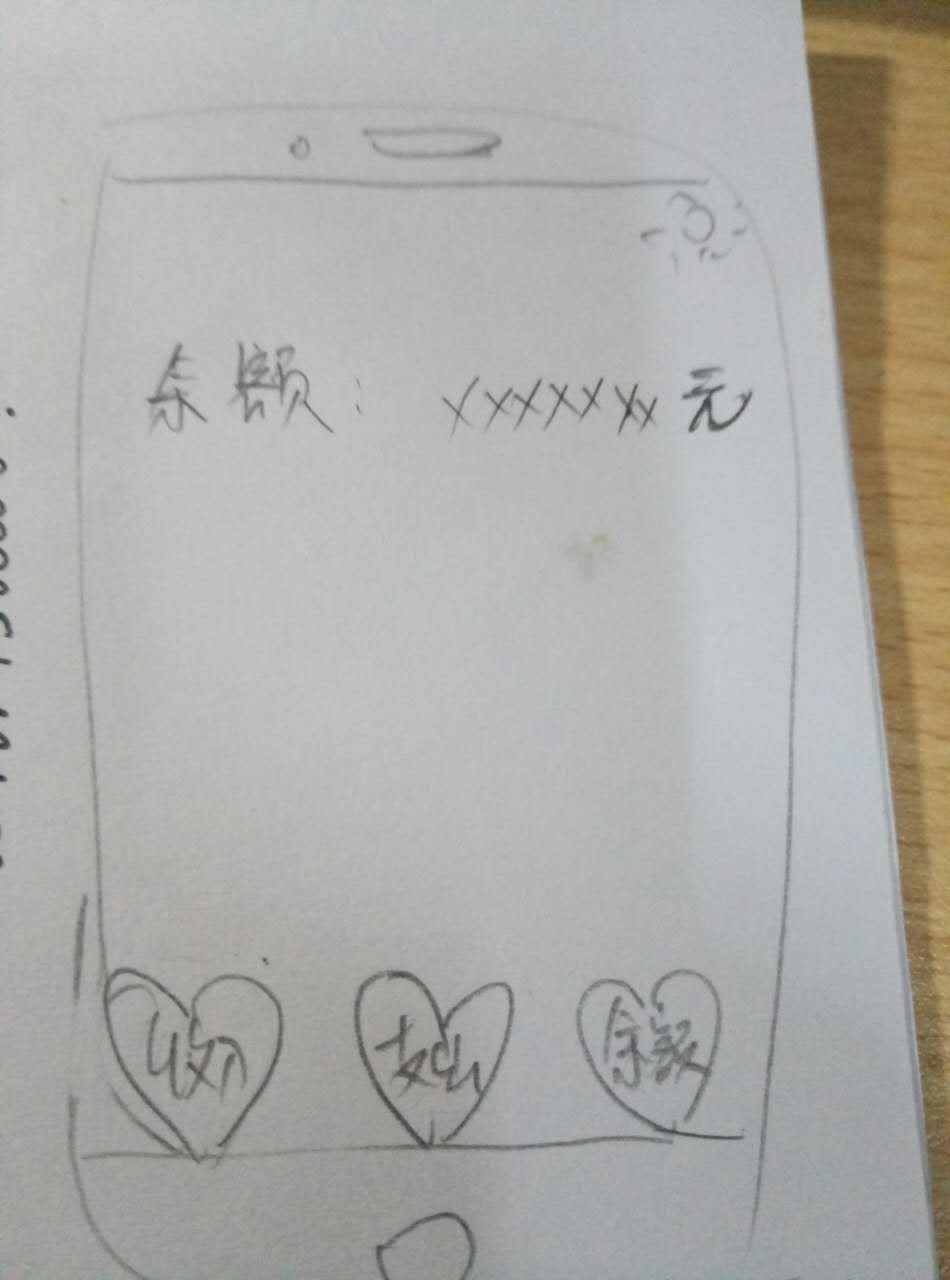 余额: xxxxxxx元
收入 支出 余额